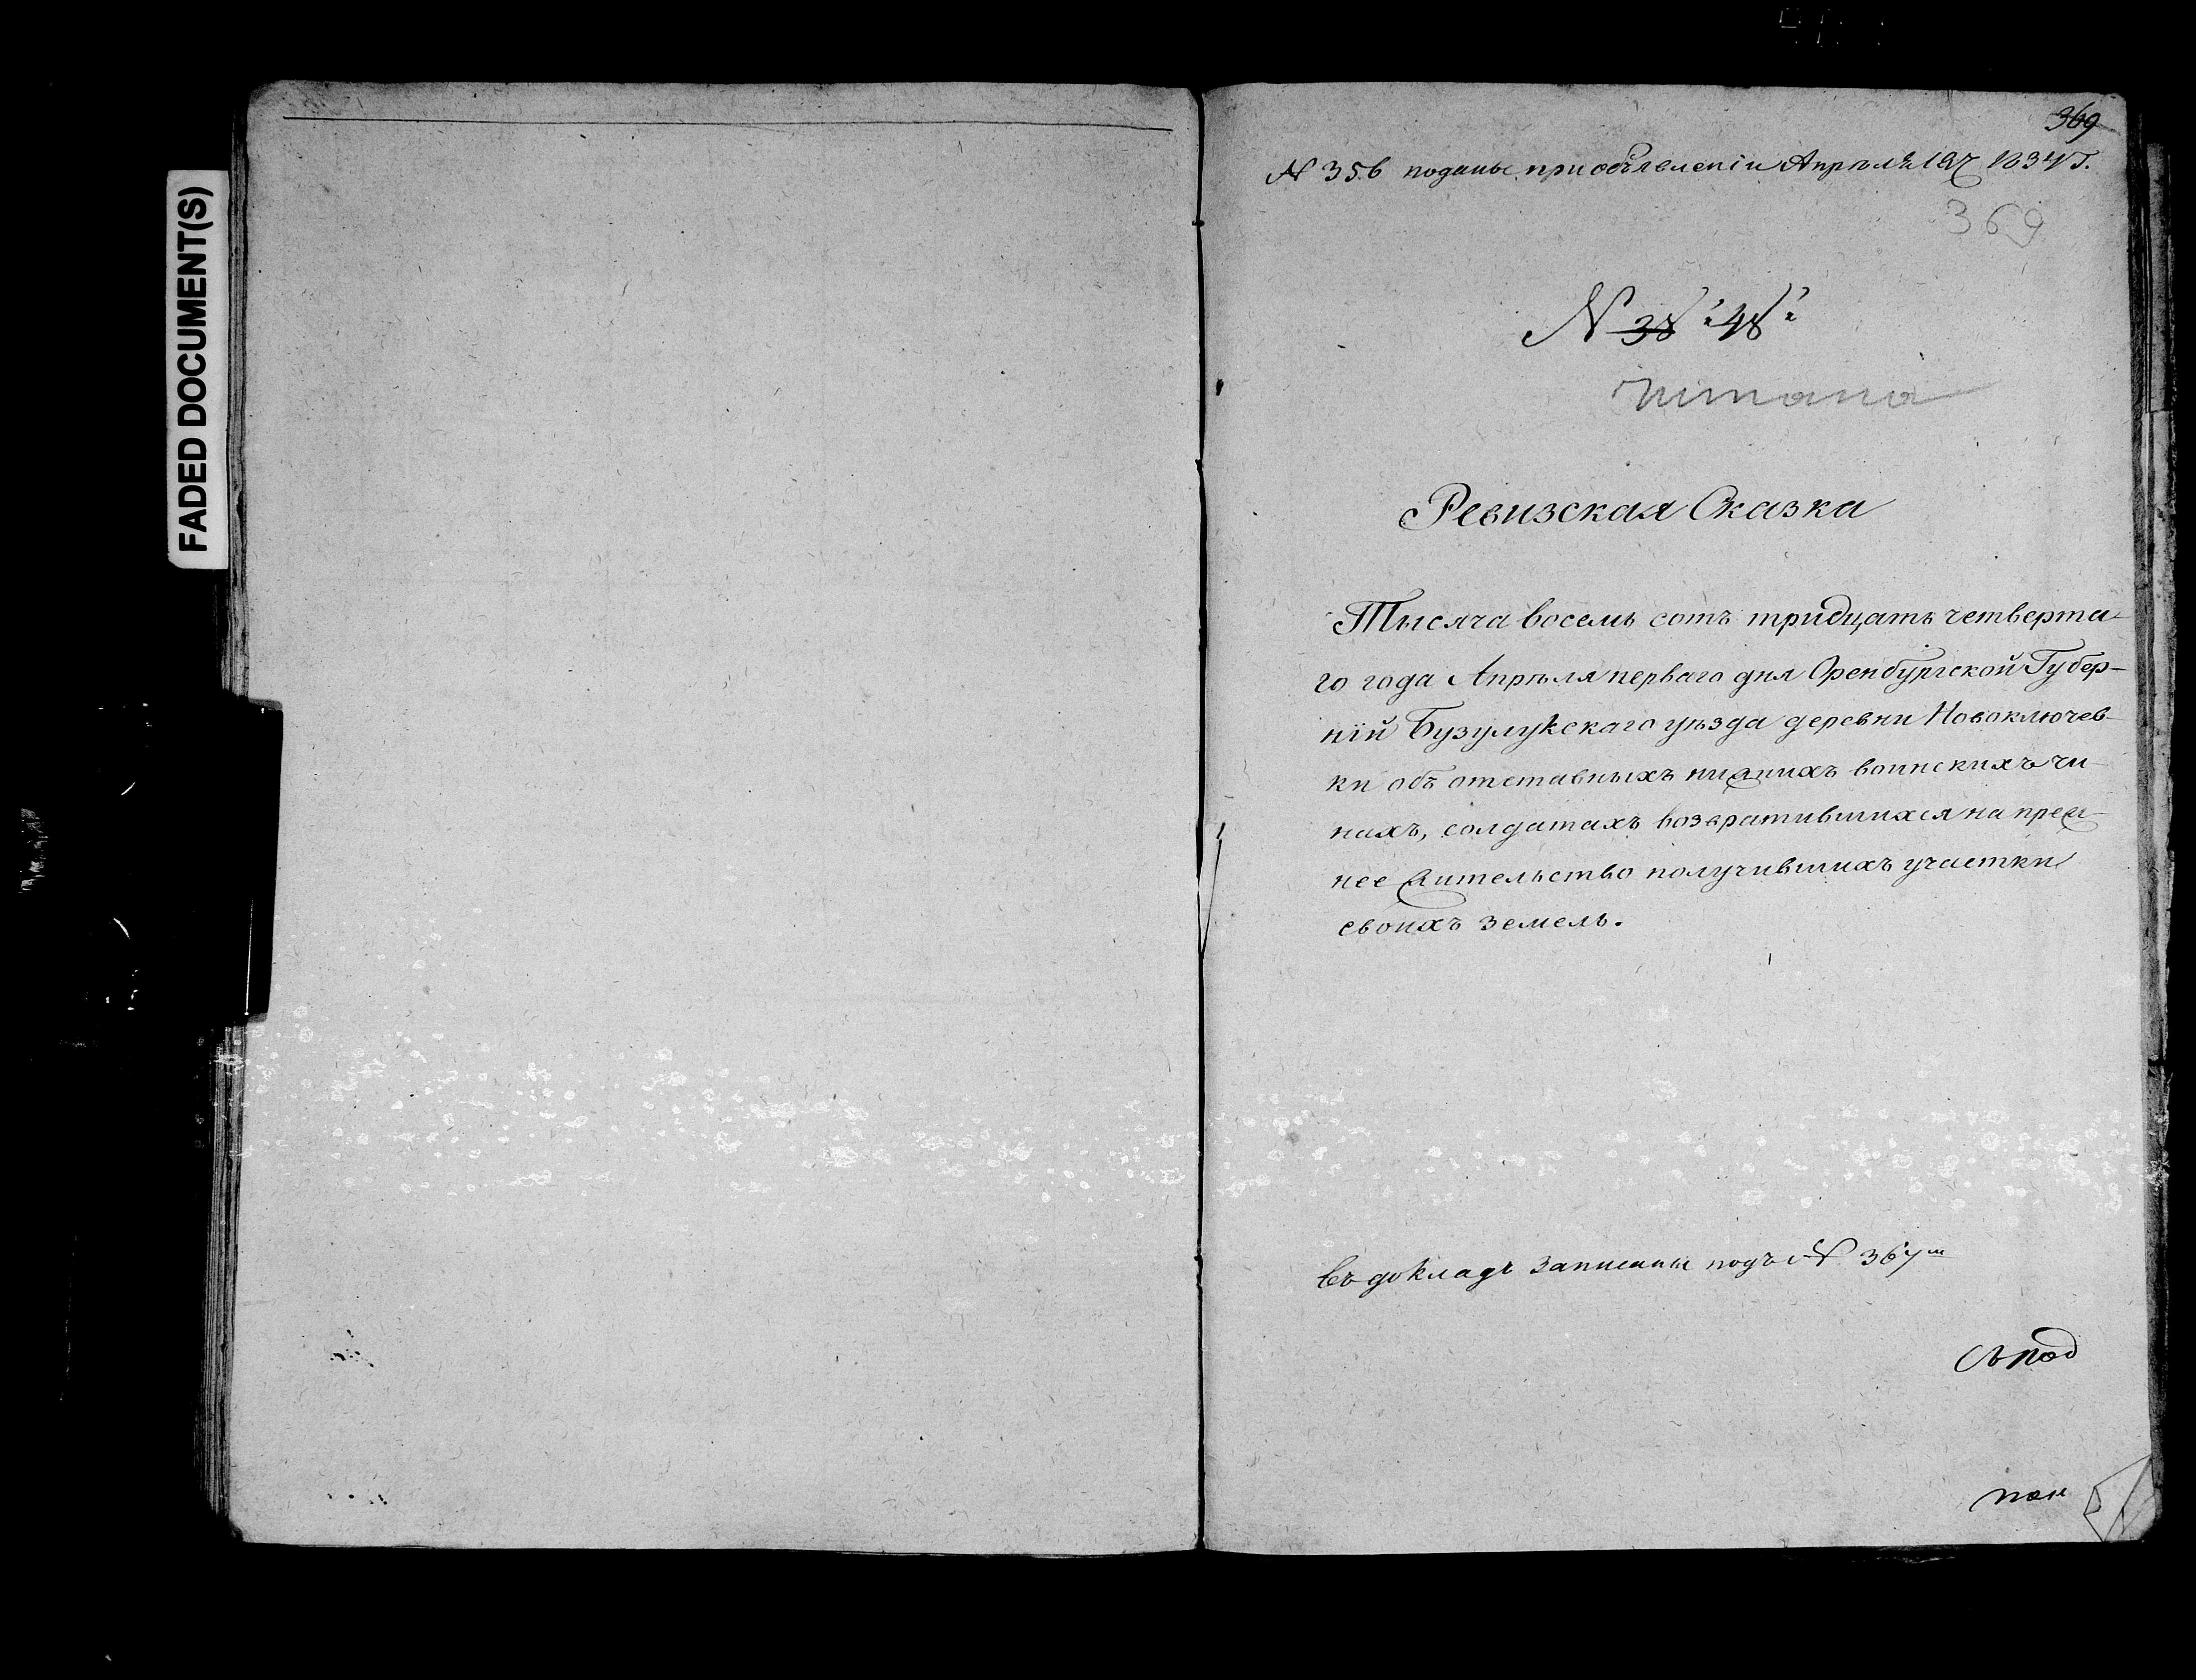 FADED DOCUMENT(S)
369
N 356 поданы при объявленіи Апрѣля 18 1834 Г.
369
N 38 "48"
читана
Ревизская Сказка
Тысяча восемь сотъ тридцать четверта-
го года Апрѣля перваго дня Оренбургской Губер-
ніи Бузулукскаго уѣзда деревни Новоключев-
ки объ отставныхъ нижнихъ воинскихъ чи-
нахъ, солдатахъ возвратившихся на преж-
нее жительство получившихъ участки
своихъ земель.
Въ докладъ записаны подъ N 367